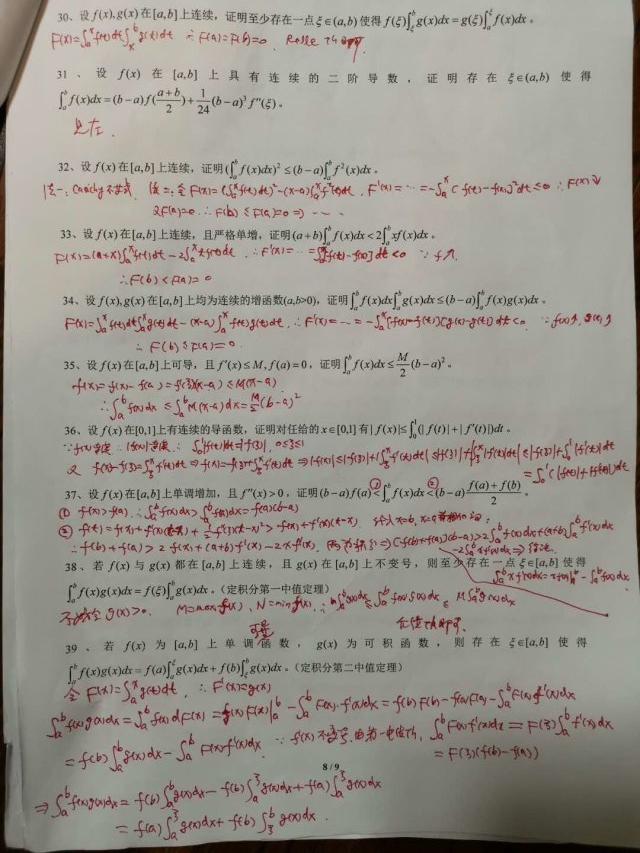 30、设 f(x), g(x) 在 [a,b] 上连续，证明至少存在一点 ξ∈(a,b) 使得 f(ξ)∫_ξ^b g(x)dx = g(ξ)∫_a^ξ f(x)dx 。
F(x)=∫_a^x f(t)dt∫_x^b g(t)dt ∴F(a)=F(b)=0 Rolle
31、设 f(x) 在 [a,b] 上具有连续的二阶导数，证明存在 ξ∈(a,b) 使得
∫_a^b f(x)dx = (b−a)f((a+b)/2) + 1/24 (b−a)³ f″(ξ) 。
32、设 f(x) 在 [a,b] 上连续，证明 (∫_a^b f(x)dx)² ≤ (b−a)∫_a^b f²(x)dx 。
法一: Cauchy不等式. 法二: 令 F(x)=(∫_a^x f(t)dt)²−(x−a)∫_a^x f²(t)dt, F'(x)=⋯=−∫_a^x [f(t)−f(x)]²dt≤0 ∴F(x)↓
又F(a)=0 ∴F(b)≤F(a)=0 ⇒ ⋯
33、设 f(x) 在 [a,b] 上连续，且严格单增，证明 (a+b)∫_a^b f(x)dx < 2∫_a^b xf(x)dx 。
F(x)=(a+x)∫_a^x f(t)dt−2∫_a^x tf(t)dt ∴F'(x)=⋯=∫_a^x [f(t)−f(x)]dt<0 ∵f↗
∴F(b)<F(a)=0
34、设 f(x), g(x) 在 [a,b] 上均为连续的增函数(a,b>0)，证明 ∫_a^b f(x)dx∫_a^b g(x)dx ≤ (b−a)∫_a^b f(x)g(x)dx 。
F(x)=∫_a^x f(t)dt∫_a^x g(t)dt−(x−a)∫_a^x f(t)g(t)dt, ∴F'(x)=⋯=−∫_a^x [f(x)−f(t)][g(x)−g(t)]dt<0
∴F(b)≤F(a)=0
35、设 f(x) 在 [a,b] 上可导，且 f′(x) ≤ M, f(a) = 0，证明 ∫_a^b f(x)dx ≤ M/2 (b−a)² 。
f(x)=f(x)−f(a)=f'(ξ)(x−a)≤M(x−a)
∴∫_a^b f(x)dx≤∫_a^b M(x−a)dx=M/2(b−a)²
36、设 f(x) 在 [0,1] 上有连续的导函数，证明对任给的 x∈[0,1] 有 |f(x)| ≤ ∫_0^1 (|f(t)|+|f′(t)|)dt 。
∵f(x)连续 ∴|f(x)|连续 ∴∫_0^1|f(t)|dt=|f(ξ)|, 0≤ξ≤1
又 f(x)−f(ξ)=∫_ξ^x f'(t)dt ⇒ f(x)=f(ξ)+∫_ξ^x f'(t)dt ⇒ |f(x)|≤|f(ξ)|+|∫_ξ^x f'(t)dt|≤|f(ξ)|+∫_0^1|f'(t)|dt
=∫_0^1(|f(t)|+|f'(t)|)dt
37、设 f(x) 在 [a,b] 上单调增加，且 f″(x) > 0，证明 (b−a)f(a) < ∫_a^b f(x)dx < (b−a)(f(a)+f(b))/2 。
① f(x)>f(a) ∴∫_a^b f(x)dx>∫_a^b f(a)dx=f(a)(b−a)
② f(t)=f(x)+f'(x)(t−x)+½f″(ξ)(t−x)²>f(x)+f'(x)(t−x).
∴f(b)+f(a)>2f(x)+(a+b)f'(x)−2xf'(x).
38、若 f(x) 与 g(x) 都在 [a,b] 上连续，且 g(x) 在 [a,b] 上不变号，则至少存在一点 ξ∈[a,b] 使得
∫_a^b f(x)g(x)dx = f(ξ)∫_a^b g(x)dx 。(定积分第一中值定理)
39、若 f(x) 为 [a,b] 上单调函数，g(x) 为可积函数，则存在 ξ∈[a,b] 使得
∫_a^b f(x)g(x)dx = f(a)∫_a^ξ g(x)dx + f(b)∫_ξ^b g(x)dx 。(定积分第二中值定理)
令 F(x)=∫_a^x g(t)dt, ∴F'(x)=g(x)
∫_a^b f(x)g(x)dx=∫_a^b f(x)dF(x)=f(x)F(x)|_a^b−∫_a^b F(x)·f'(x)dx=f(b)F(b)−f(a)F(a)−∫_a^b F(x)f'(x)dx
=f(b)∫_a^b g(x)dx−∫_a^b F(x)f'(x)dx ∫_a^b F(x)f'(x)dx=F(ξ)∫_a^b f'(x)dx
=F(ξ)(f(b)−f(a))
8 / 9
⇒∫_a^b f(x)g(x)dx=f(b)∫_a^b g(x)dx−f(b)∫_a^ξ g(x)dx+f(a)∫_a^ξ g(x)dx
=f(a)∫_a^ξ g(x)dx+f(b)∫_ξ^b g(x)dx.